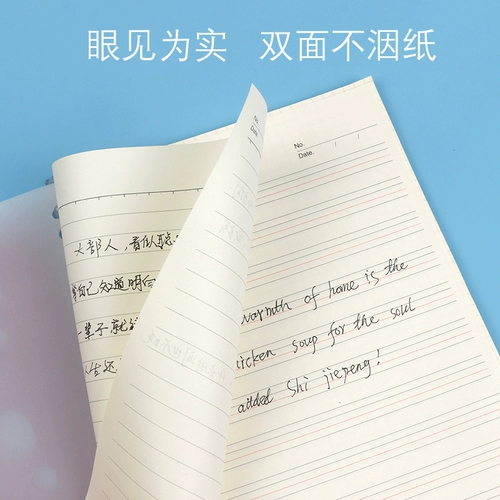 眼见为实 双面不洇纸
No.
Date.
大部人，看似聪
自己知道明白
一辈子就
生还
warmth of home is the
icken soup for the soul
added Shi jiepeng!